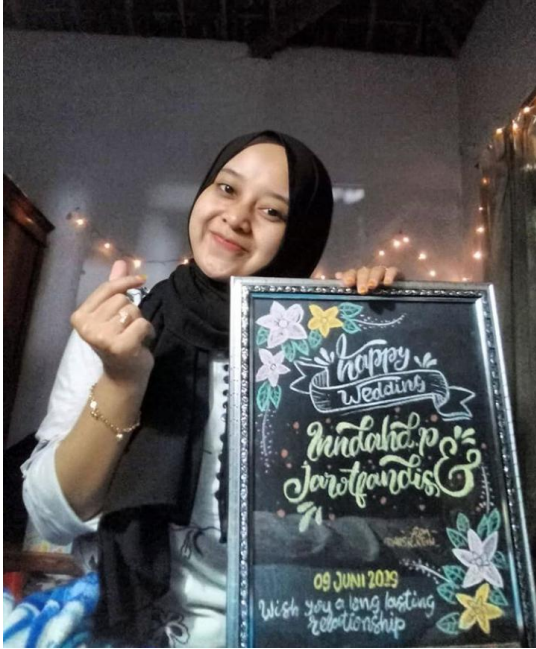 happy
Wedding
Mndahd.p
&
Jarotpandis.
09 JUNI 2029
Wish you a long lasting
relationship